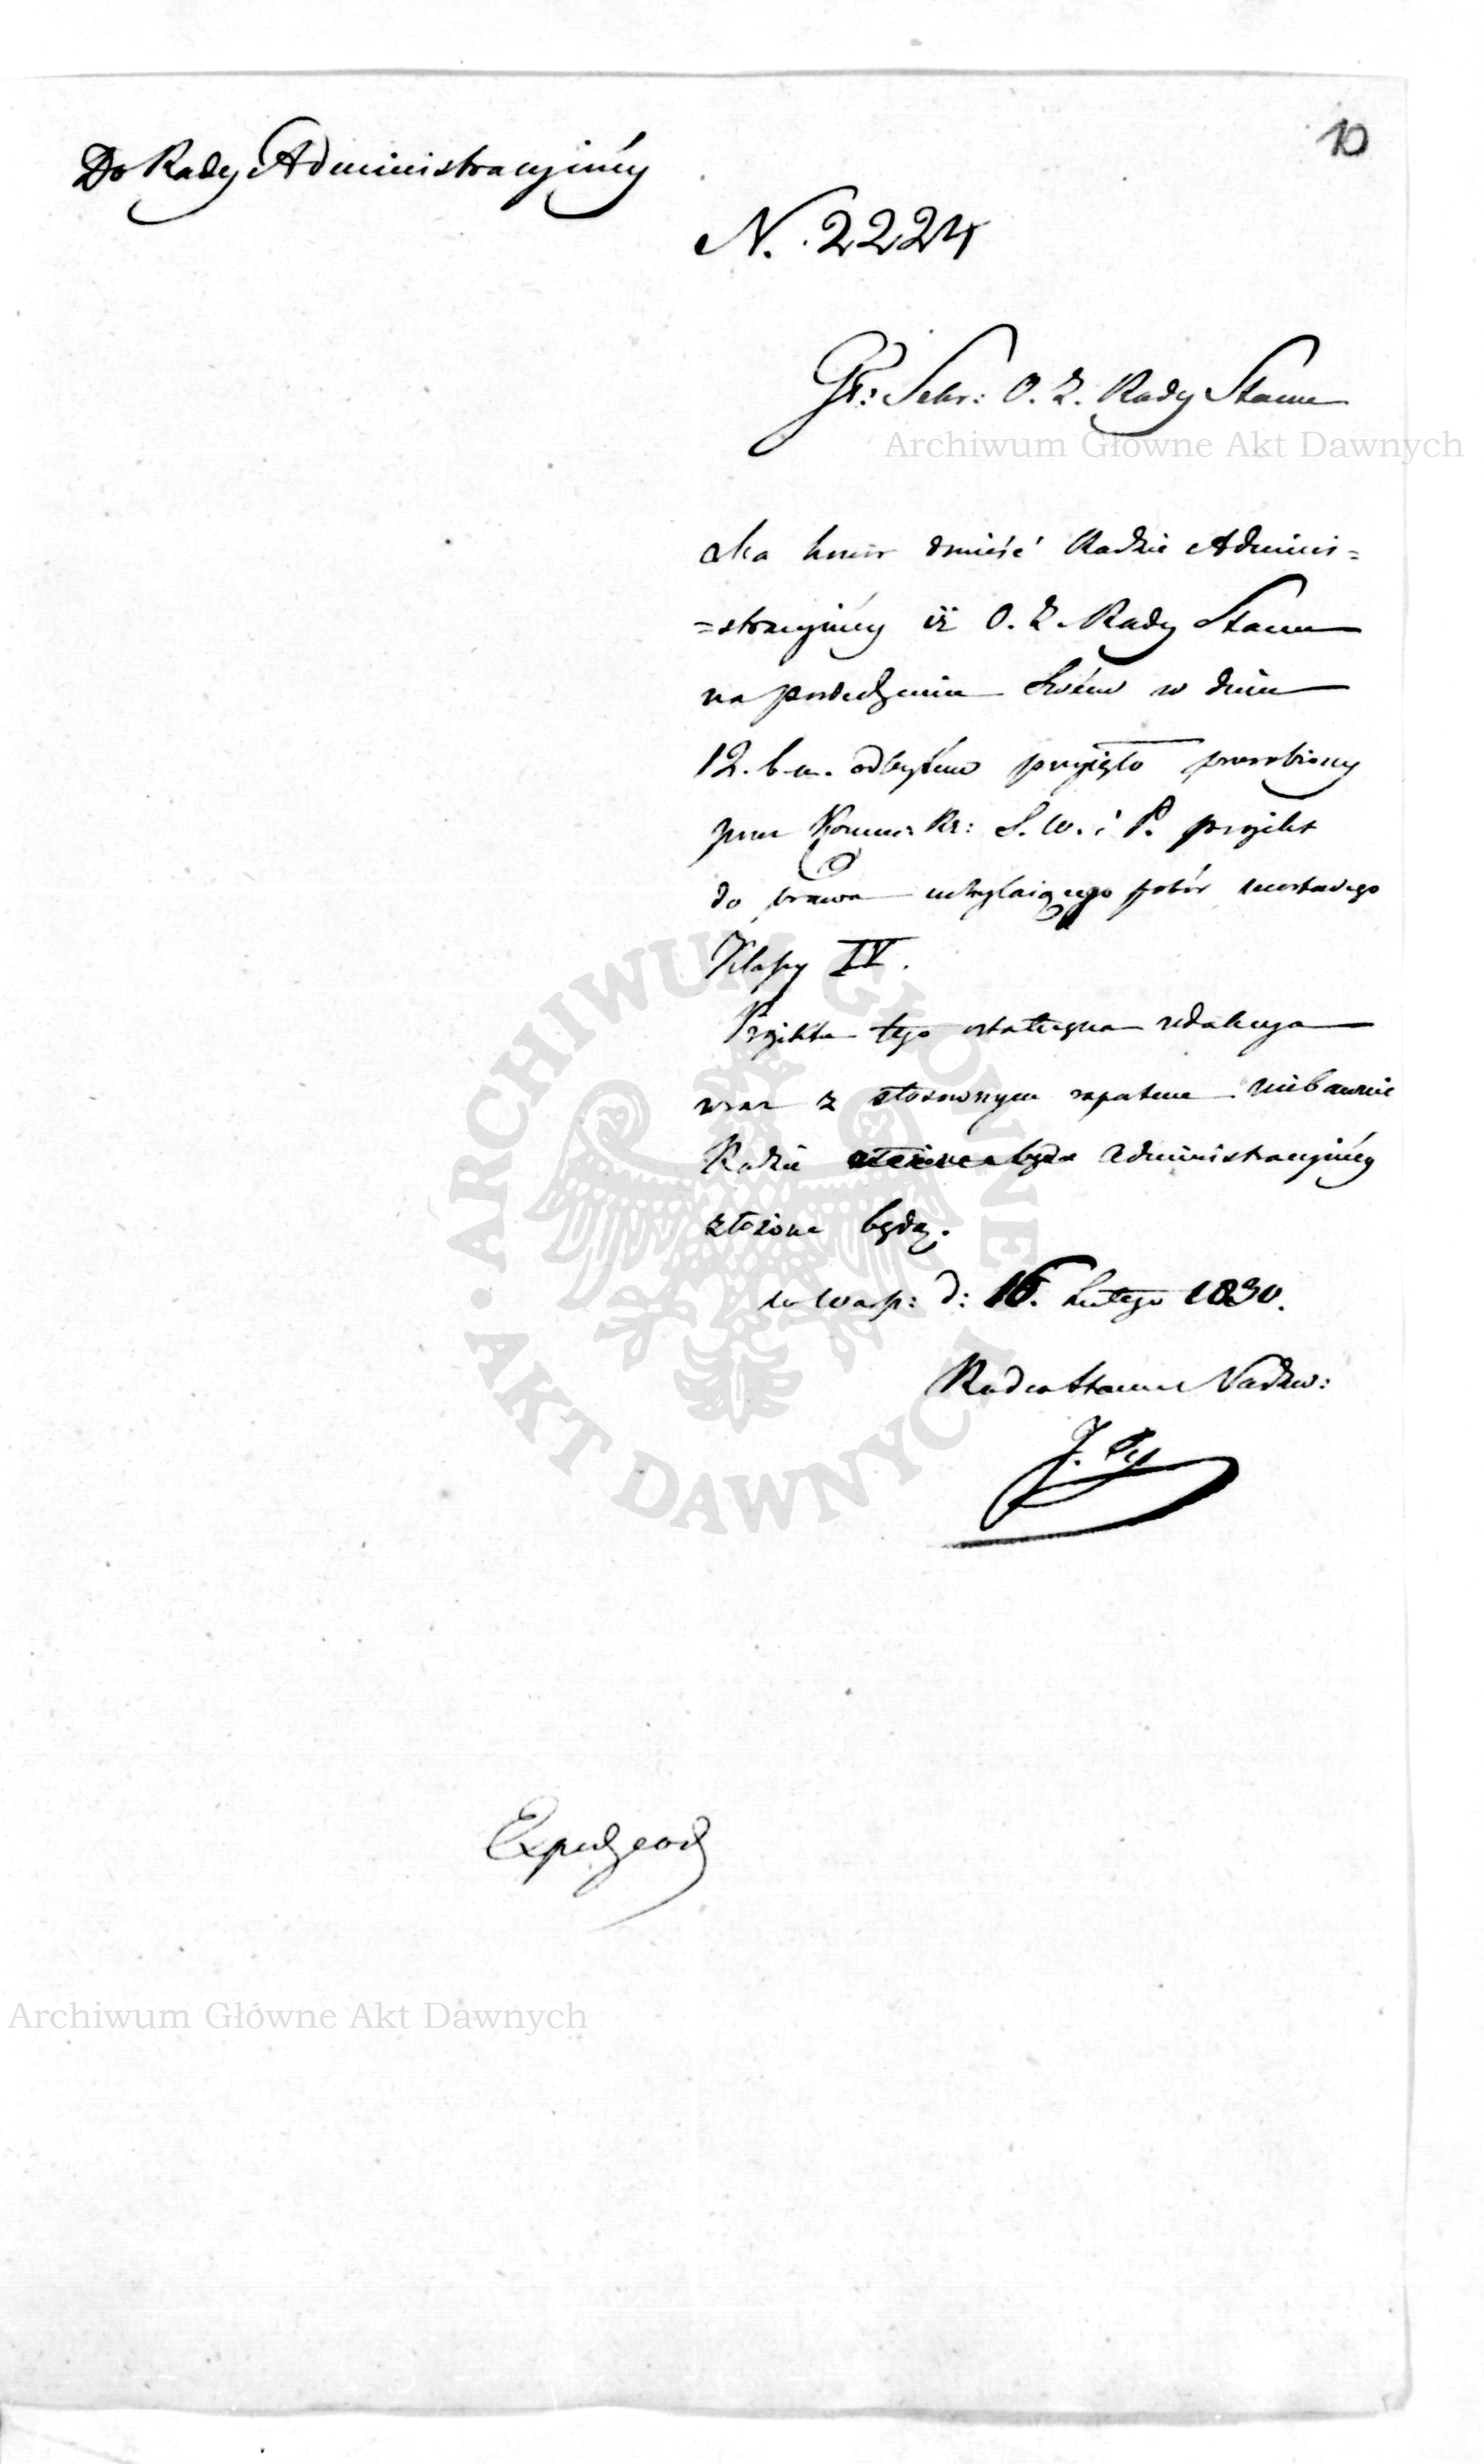 10
Do Rady Administracyinéy
N. 2224
Gł: Sekr: O. Z. Rady Stanu
Archiwum Główne Akt Dawnych
Ma honor donieść Radzie Adminis=
=stracyinéy iż O. Z. Rady Stanu
na posiedzeniu Swém w dniu
12. b.m. odbytém przyięło przerobiony
przez Kommis: Rz: S. W. i P. projekt
do prawa uchylaiącego pobór mostowego
Klassy IV.
Projektu tego ostateczna redakcya
wraz z stosownym raportem niebawnie
Radzie złożone będą Administracyinéy
złożone będą.
w Warsz: d: 16. Lutego 1830.
Radca Stanu Nadzw:
J.
Expedycod
ARCHIWUM GŁÓWNE AKT DAWNYCH
Archiwum Główne Akt Dawnych